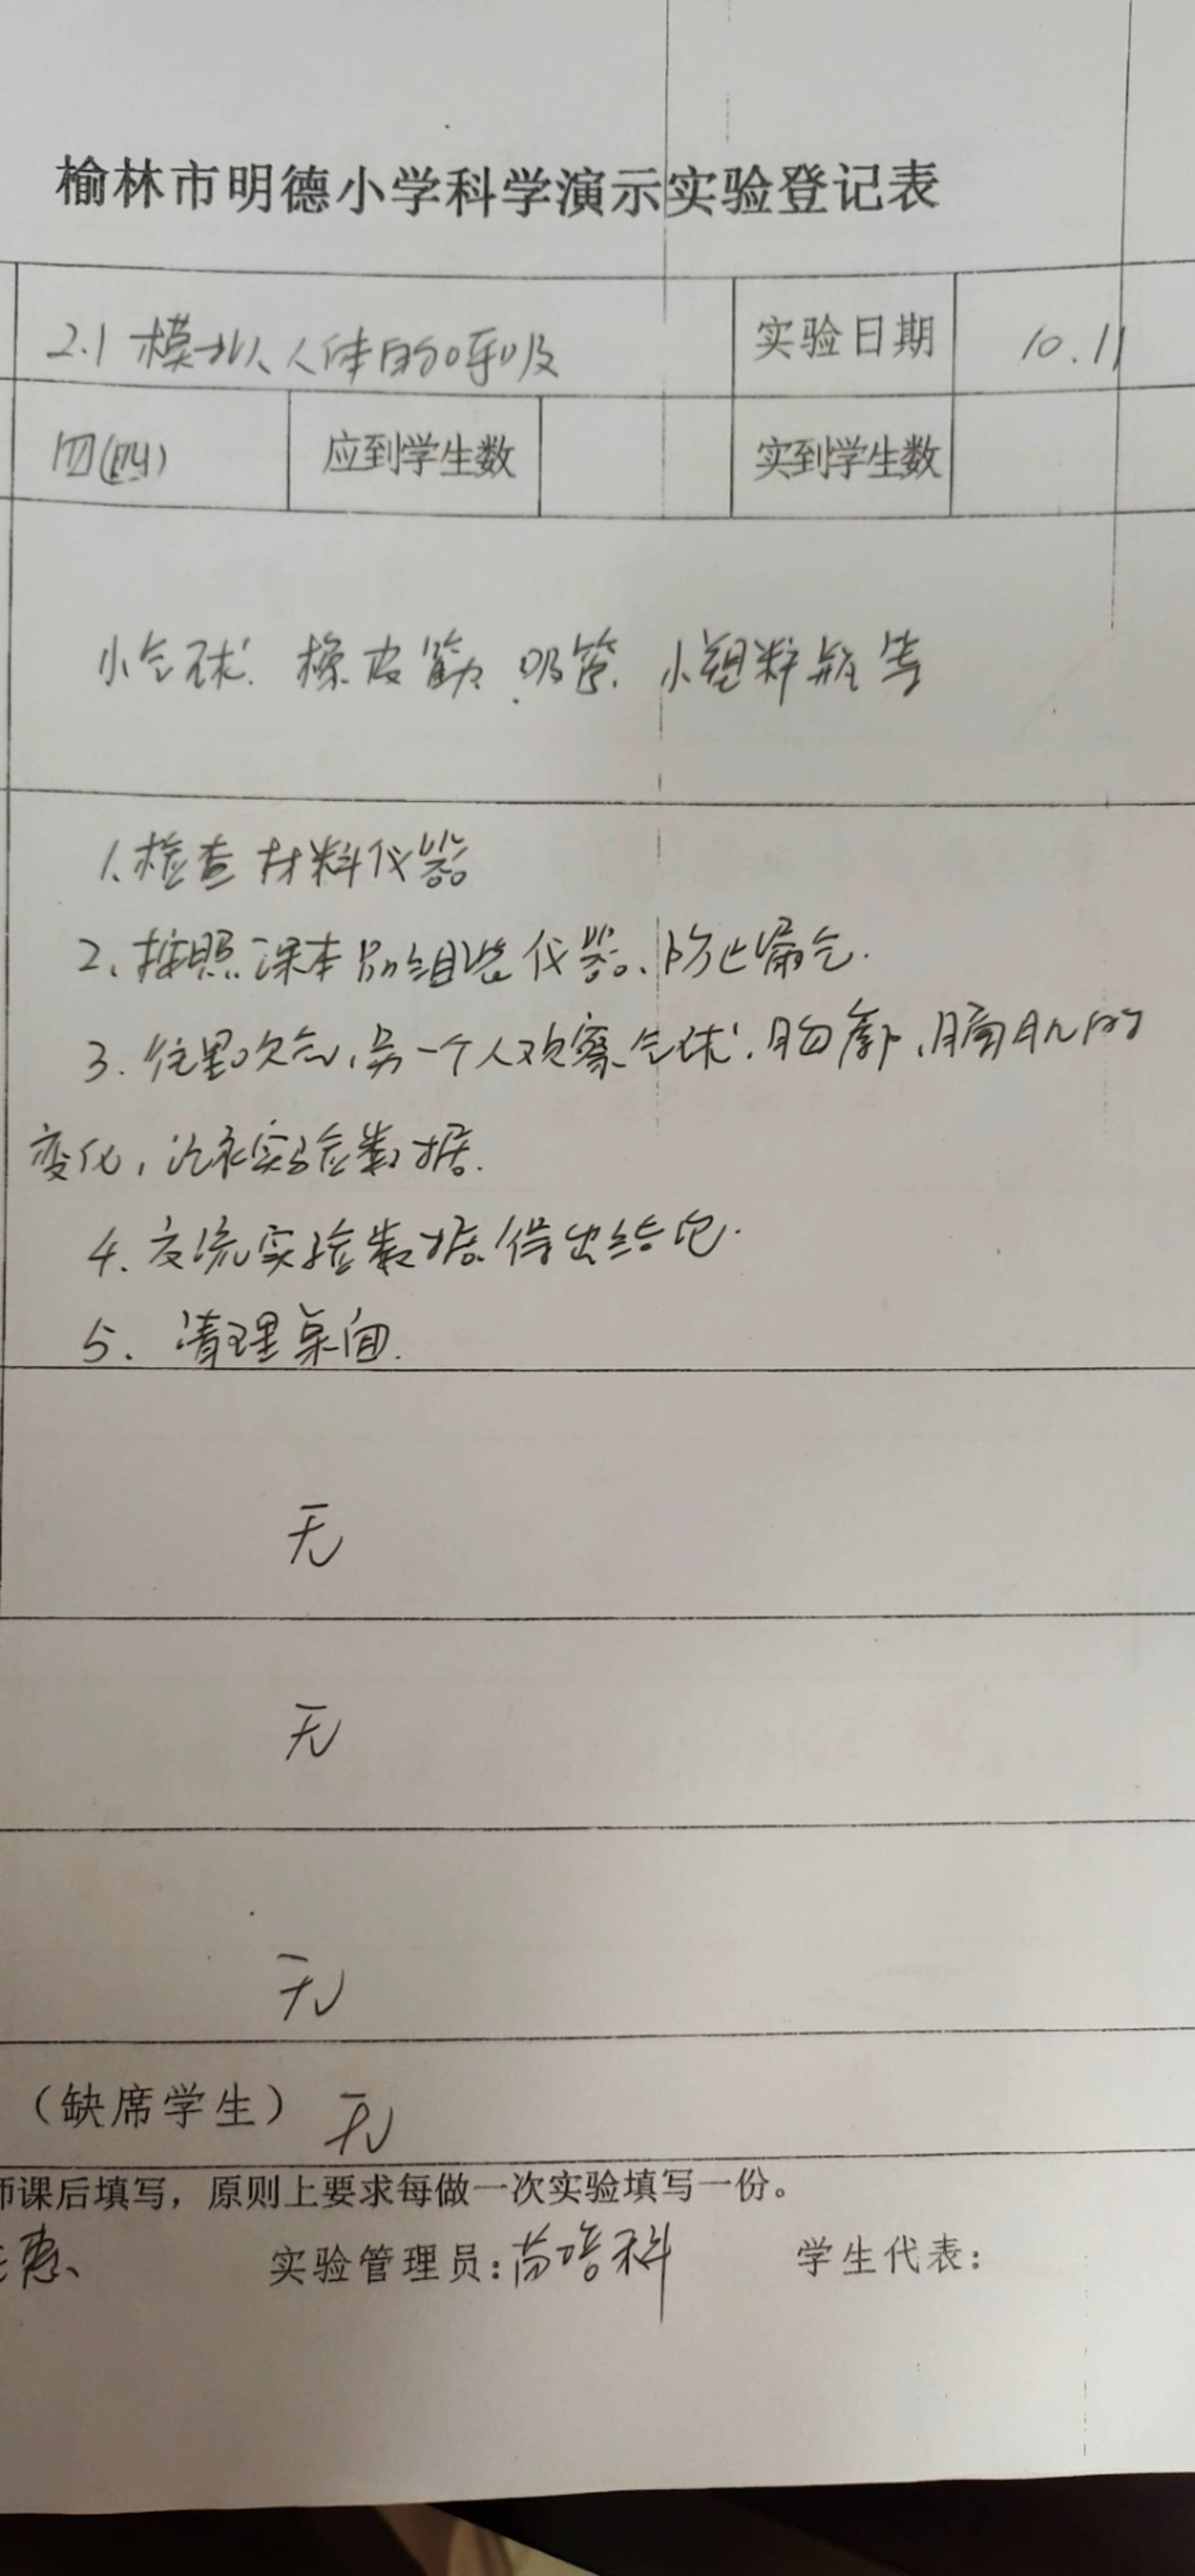 榆林市明德小学科学演示实验登记表
2.1 模拟人体的呼吸 实验日期 10.11
四(四) 应到学生数 实到学生数
小气球、橡皮筋、吸管、小塑料瓶等
1、检查材料仪器
2、按照课本P.组装仪器、防止漏气.
3.往里吹气,另一个人观察气球、胸廓、膈肌的
变化,记录实验数据.
4.交流实验数据.得出结论.
5、清理桌面.
无
无
无
(缺席学生) 无
师课后填写,原则上要求每做一次实验填写一份。
惠、 实验管理员:苗培科 学生代表: